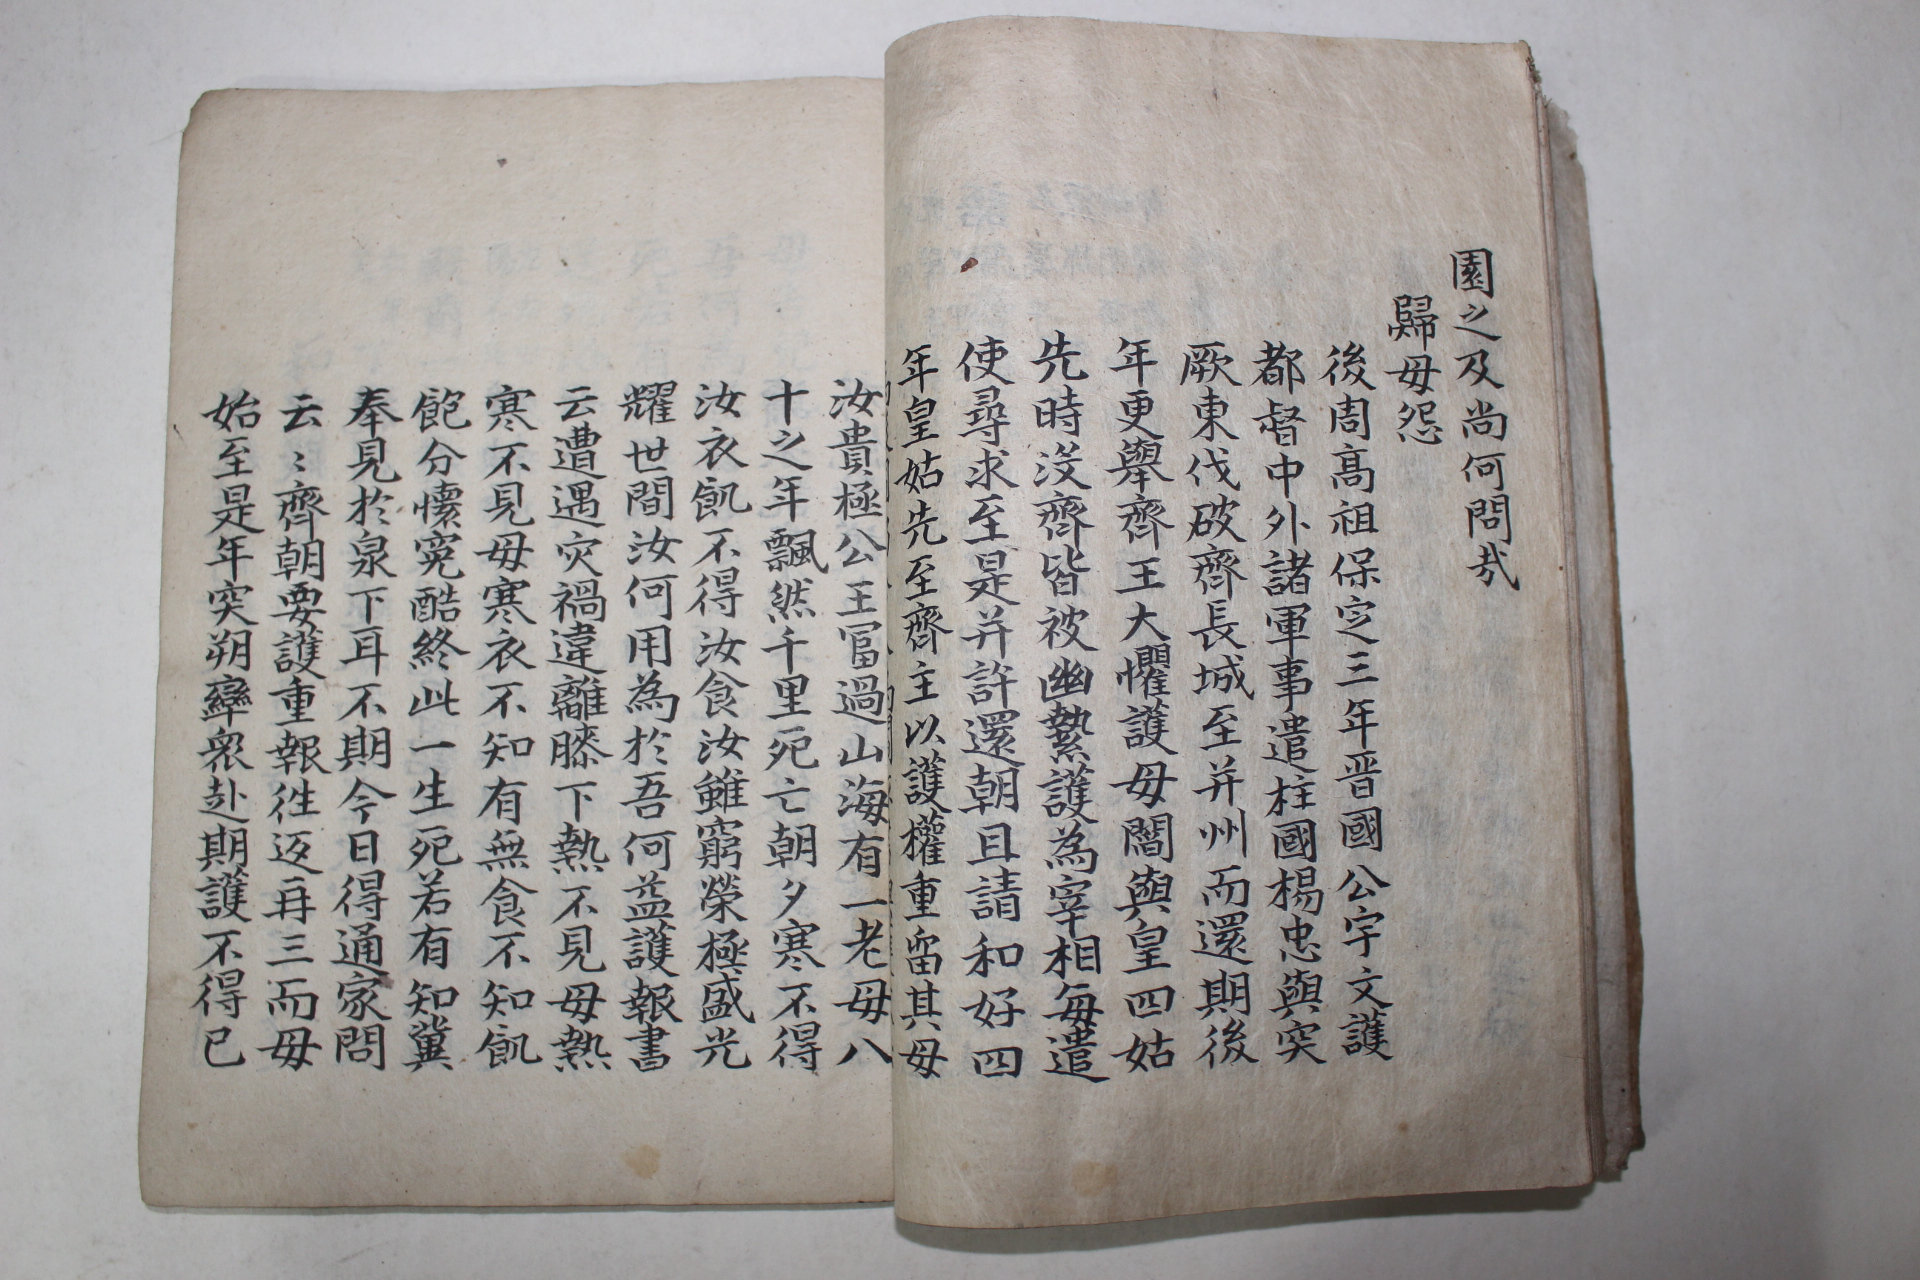 園之及尚何問哉
歸母怨
後周高祖保定三年晋國公宇文護
都督中外諸軍事遣柱國楊忠與突
厥東伐破齊長城至并州而還期後
年更舉齊王大懼護母閻與皇四姑
先時沒齊皆被幽縶護為宰相每遣
使尋求至是并許還朝且請和好四
年皇姑先至齊主以護權重留其母
汝貴極公王冨過山海有一老母八
十之年飄然千里死亡朝夕寒不得
汝衣飢不得汝食汝雖窮榮極盛光
耀世間汝何用為於吾何益護報書
云遭遇灾禍違離膝下熱不見母熱
寒不見母寒衣不知有無食不知飢
飽分懷寃酷終此一生死若有知冀
奉見於泉下耳不期今日得通家問
云〻齊朝要護重報徃返再三而母
始至是年突朔率衆赴期護不得已